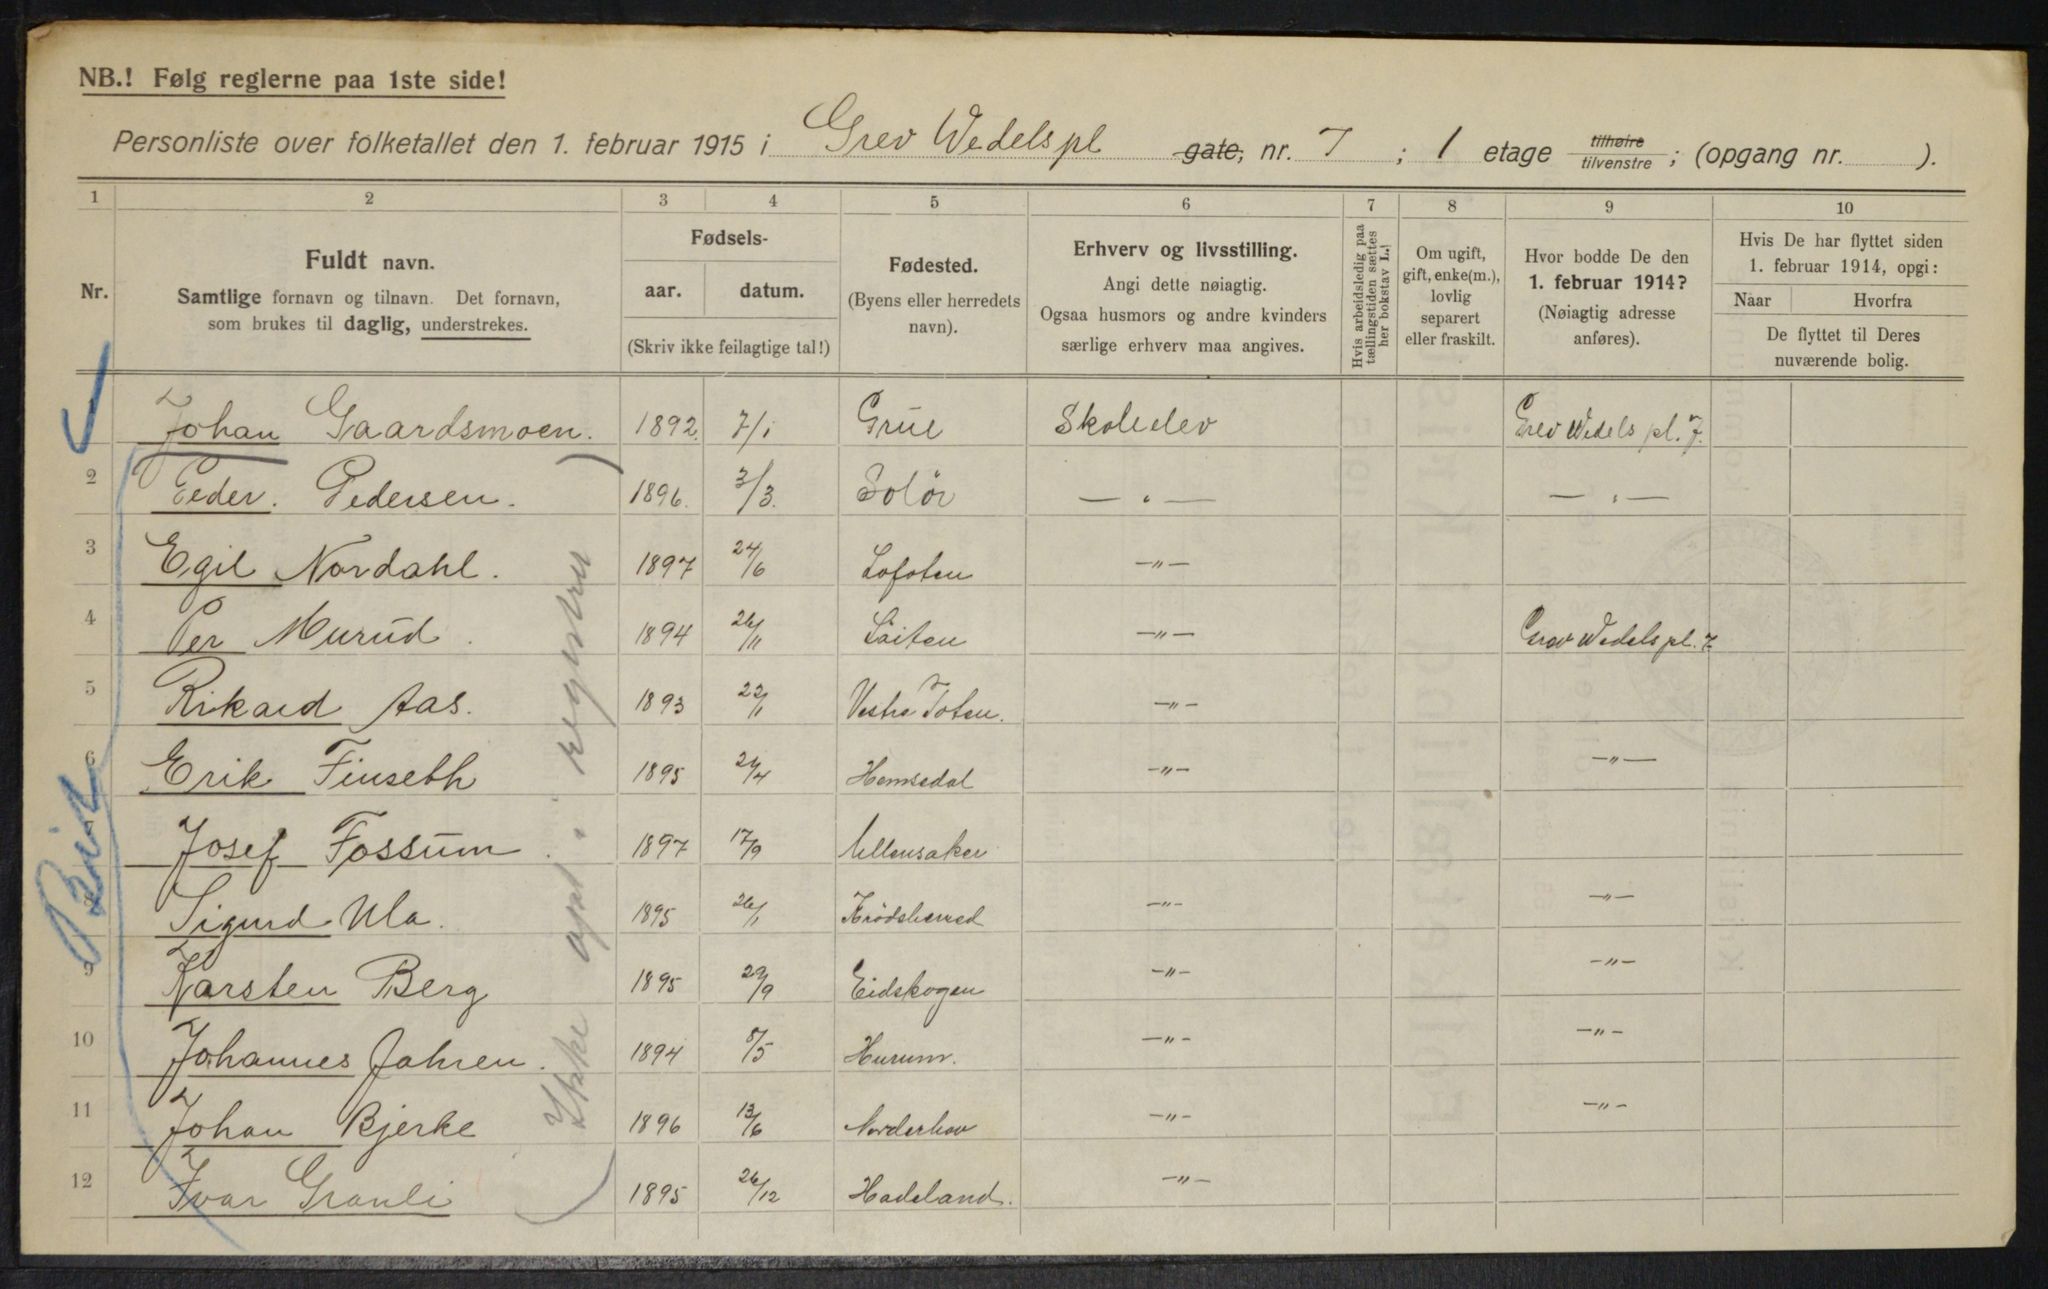 NB.! Følg reglerne paa 1ste side!
Personliste over folketallet den 1. februar 1915 i Grev Wedels pl gate, nr. 7 ; 1 etage tilhøire tilvenstre ; (opgang nr. ).
1 2 3 4 5 6 7 8 9 10
Nr.
Fuldt navn.
Samtlige fornavn og tilnavn. Det fornavn,
som brukes til daglig, understrekes.
Fødsels-
aar. datum.
(Skriv ikke feilagtige tal!)
Fødested.
(Byens eller herredets
navn).
Erhverv og livsstilling.
Angi dette nøiagtig.
Ogsaa husmors og andre kvinders
særlige erhverv maa angives.
Hvis arbeidsledig paa
tællingstiden sættes
her bokstav L.!
Om ugift,
gift, enke(m.),
lovlig
separert
eller fraskilt.
Hvor bodde De den
1. februar 1914?
(Nøiagtig adresse
anføres).
Hvis De har flyttet siden
1. februar 1914, opgi:
Naar Hvorfra
De flyttet til Deres
nuværende bolig.
Johan Gaardsmoen. 1892. 7/1 Grue Skoleelev Grev Wedels pl. 7.
2 Peder. Pedersen. 1896. 3/3. Solör — " — — " —
3 Egil Nordahl. 1897 24/6 Lofoten — " —
4 Per Murud. 1894 26/11 Löiten — " — Grev Wedels pl. 7
5 Rikard Aas. 1893 22/1 Vestre Toten. — " —
6 Erik Finseth 1895 24/4 Hemsedal — " — — " —
7 Josef Fossum. 1897 17/9 Ullensaker
8 Sigurd Ula. 1895 26/1 Krödsherred — " — — " —
9 Karsten Berg 1895 29/9 Eidskogen — " — — " —
10 Johannes Jahren. 1894 8/5 Hurum. — " — — " —
11 Johan Bjerke 1896 13/6 Norderhov — " — — " —
12 Ivar Granli 1895 26/12 Hadeland. — " —
Ikke opt. i registru